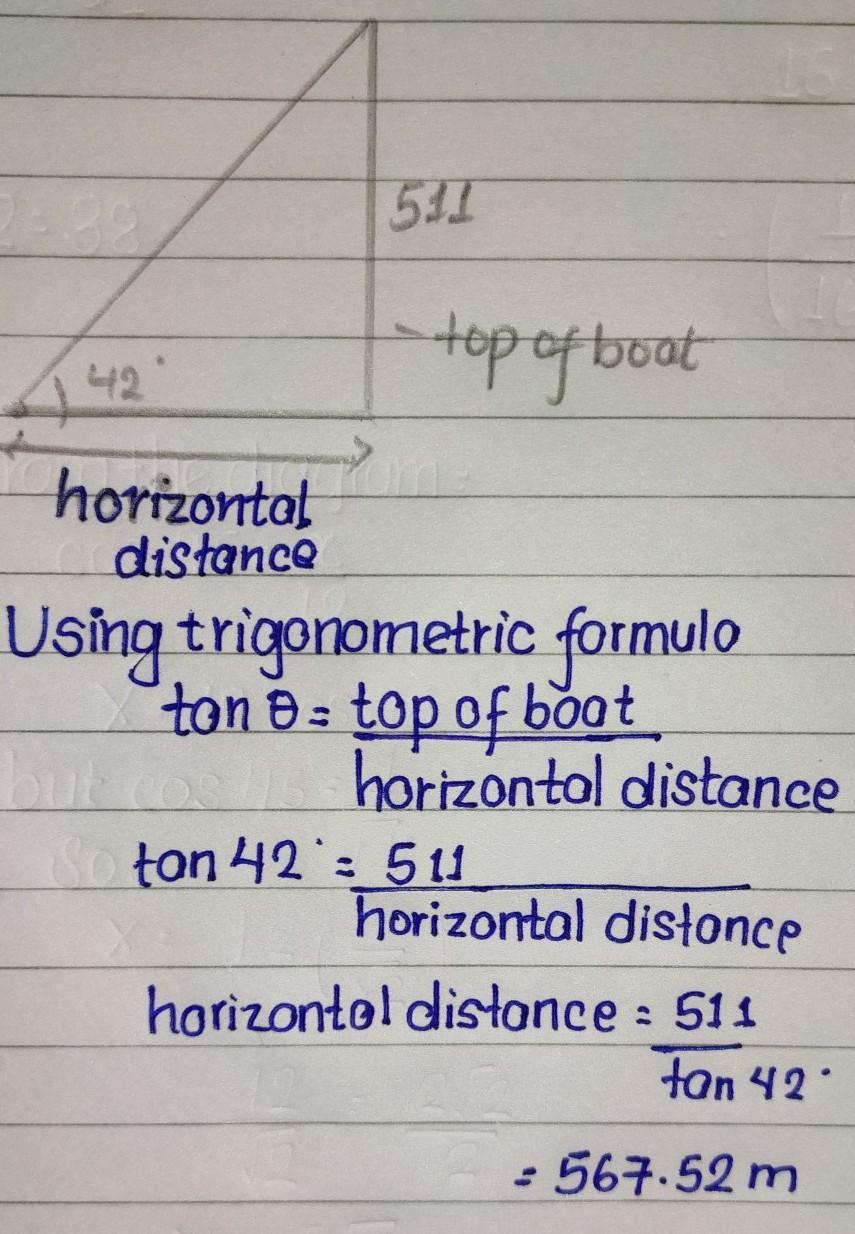 511
- top of boat
42°
horizontal
distance
Using trigonometric formulo
tan θ = top of boat
horizontal distance
tan 42° = 511
horizontal distance
horizontal distance = 511
tan 42°
= 567.52 m